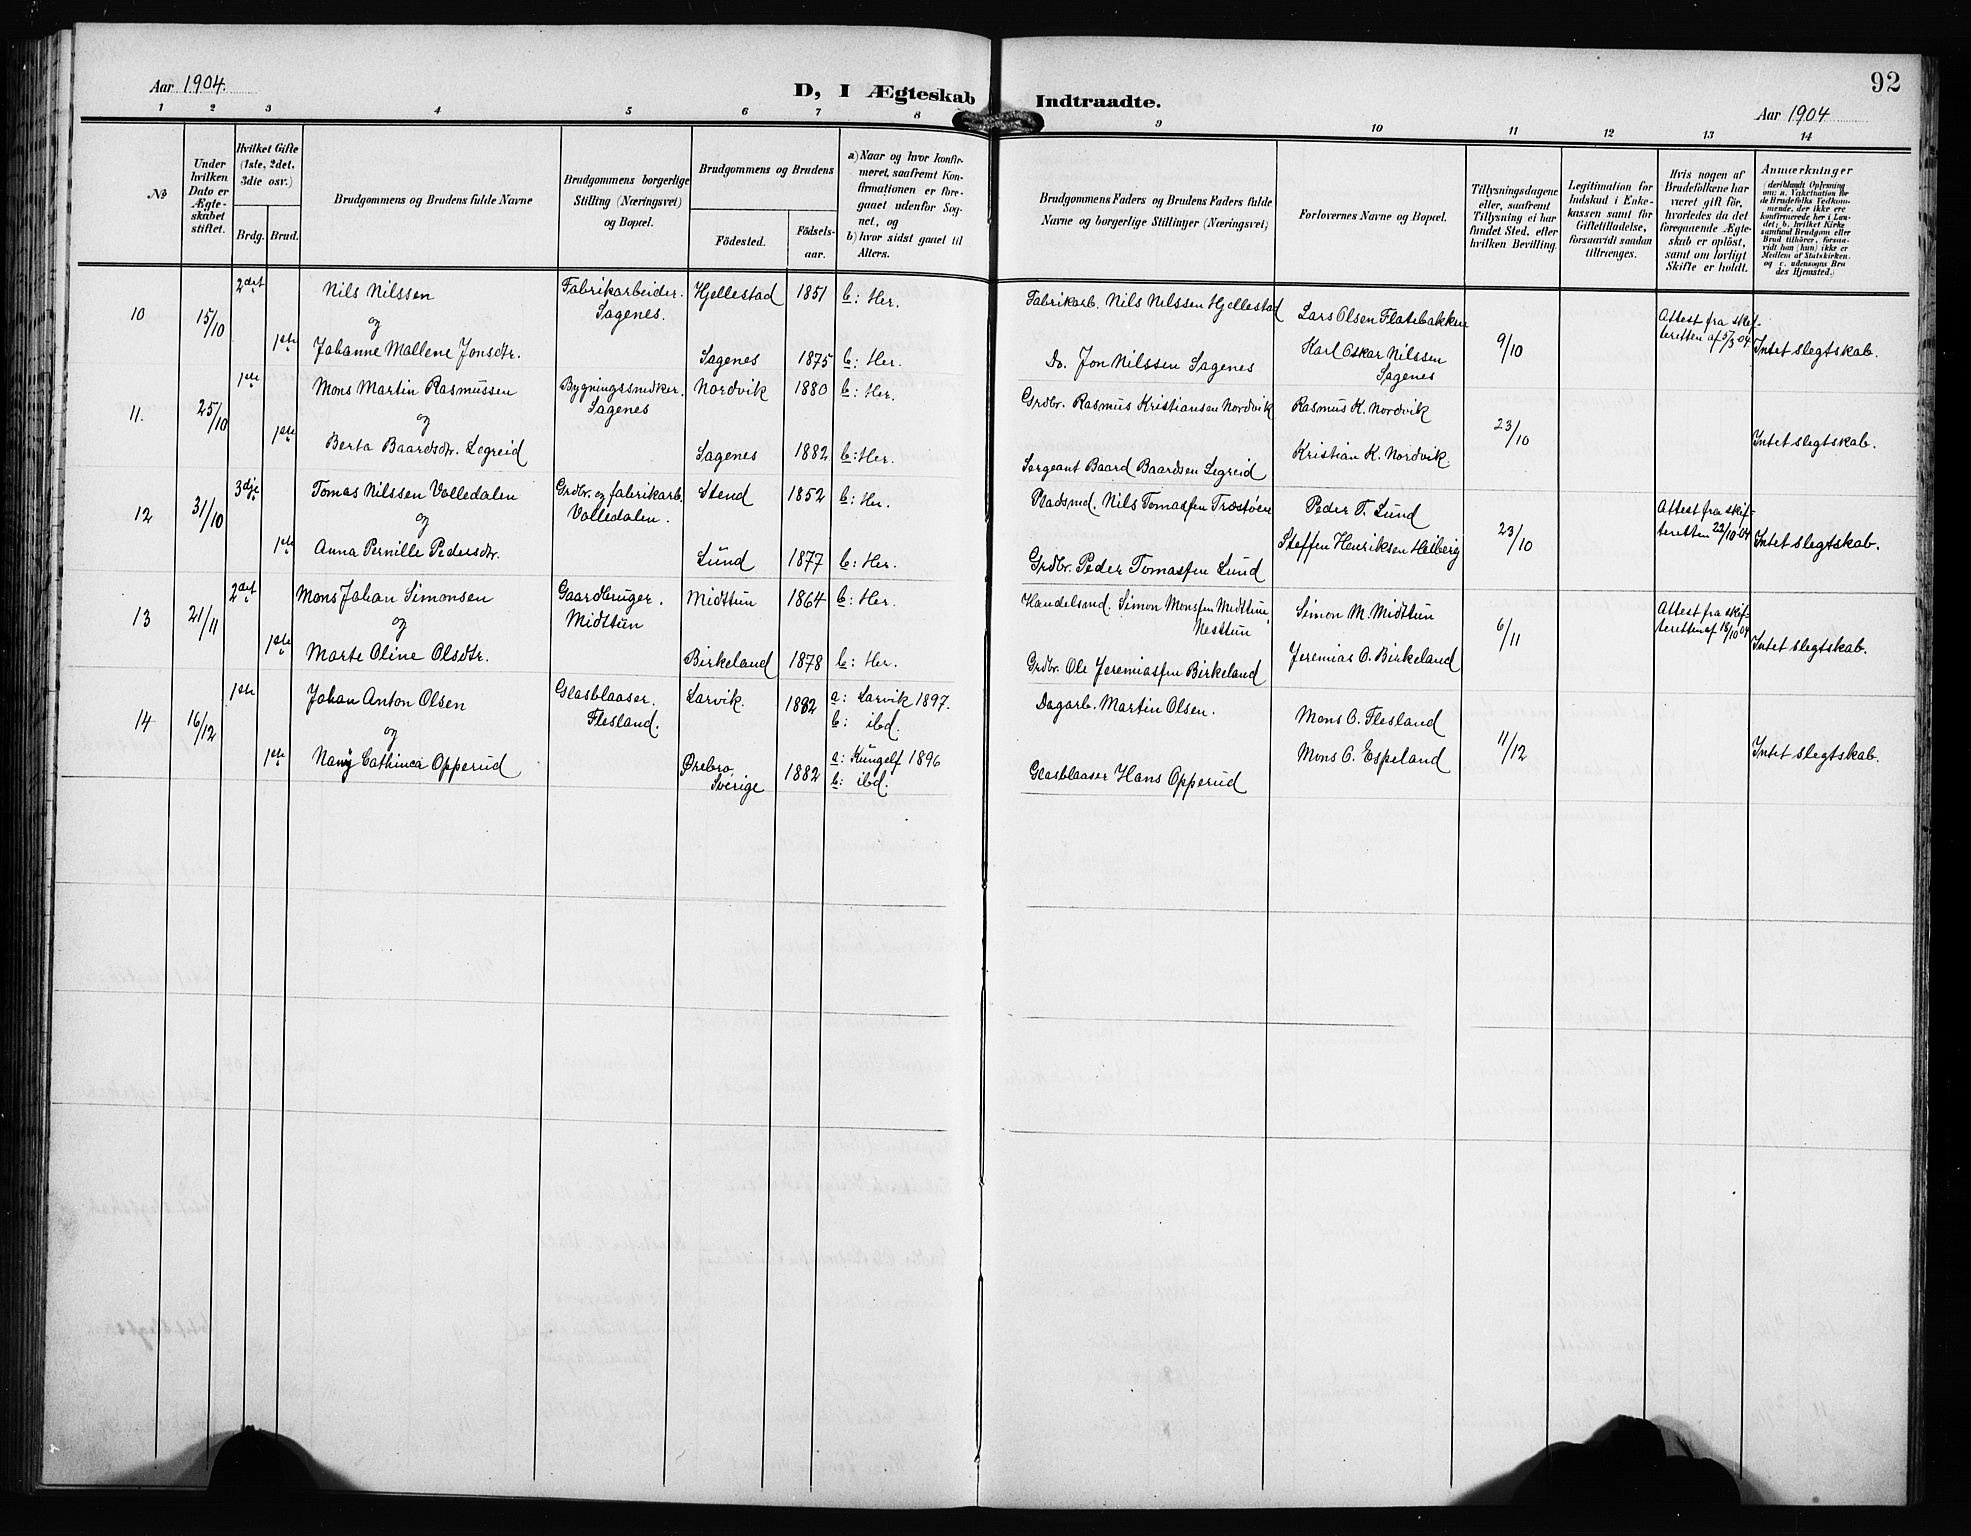 Aar 1904.
D, I Ægteskab Indtraadte.
92
Aar 1904
1 2 3 4 5 6 7 8 9 10 11 12 13 14
No
Under hvilken Dato er Ægte-skabet stiftet.
Hvilket Gifte (1ste, 2det, 3die osv.)
Brdg. Brud.
Brudgommens og Brudens fulde Navne
Brudgommens borgerlige Stilling (Næringsvei) og Bopæl.
Brudgommens og Brudens
Födested. Födsels-aar.
a) Naar og hvor konfir-meret, saafremt Kon-firmationen er fore-gaaet udenfor Sog-net, og
b) hvor sidst gaaet til Alters.
Brudgommens Faders og Brudens Faders fulde Navne og borgerlige Stillinger (Næringsvei)
Forlovernes Navne og Bopæl.
Tillysningsdagene eller, saafremt Tillysning ei har fundet Sted, efter hvilken Bevilling.
Legitimation for Indskud i Enke-kassen samt for Giftetilladelse, forsaavidt saadan tiltrænges.
Hvis nogen af Brudefolkene har været gift för, hvorledes da det foregaaende Ægte-skab er oplöst, samt om lovligt Skifte er holdt.
Anmærkninger
(deriblandt Oplysning om: a. Vakcination for de Brudefolks Vedkom-mende, der ikke ere konfirmerede her i Lan-det; b. hvilket Kirke samfund Brudgom eller Brud tilhörer, forsaa-vidt han (hun) ikke er Medlem af Statskirken. og c. udensogns Bru des Hjemsted.)
10 15/10 2det Nils Nilssen Fabrikarbeider. Sagenes. Hjellestad 1851 b: Her. Fabrikarb. Nils Nilssen Hjellestad Lars Olsen Flatebakken 9/10 Attest fra skif-teretten af 5/3 04. Intet slegtskab.
og
1ste Johanne Mallene Jonsdtr. Sagenes 1875 b: Her. Do. Jon Nilssen Sagenes Karl Oskar Nilssen Sagenes
11. 25/10 1ste Mons Martin Rasmussen Bygningssnedker. Sagenes Nordvik 1880 b: Her. Grdbr. Rasmus Kristiansen Nordvik Rasmus K. Nordvik 23/10 Intet slegtskab.
og
1ste Berta Baardsdtr. Legreid Sagenes 1882 b: Her. Sergeant Baard Baardsen Legreid Kristian K. Nordvik
12 31/10 3dje Tomas Nilssen Valledalen Grdbr. og fabrikarb. Valledalen. Stend 1852 b: Her. Pladsmd. Nils Tomassen Træstøen Peder T. Lund 23/10 Attest fra skif-teretten 22/10 04 Intet slegtskab.
og
1ste Anna Pernille Pedersdtr. Lund 1877 b: Her. Grdbr. Peder Tomassen Lund Steffen Henriksen Helberg
13 21/11 2det Mons Johan Simonsen Gaardbruger. Midttun Midttun 1864 b: Her. Handelsmd. Simon Monssen Midttun, Nesttun Simon M. Midttun 6/11 Attest fra skif-teretten af 18/10 04 Intet slegtskab.
og
1ste Marte Oline Olsdtr. Birkeland 1878 b: Her. Grdbr. Ole Jeremiassen Birkeland Jeremias O. Birkeland
14 16/12 1ste Johan Anton Olsen Glasblaaser. Flesland. Larvik. 1882 a: Larvik 1897. b: ibd. Dagarb. Martin Olsen. Mons O. Flesland 11/12 Intet slegtskab.
og
1ste Nany Cathinca Opperud Ørebro, Sverige 1882 a: Kungelf 1896 b: ibd. Glasblaaser Hans Opperud Mons O. Espeland